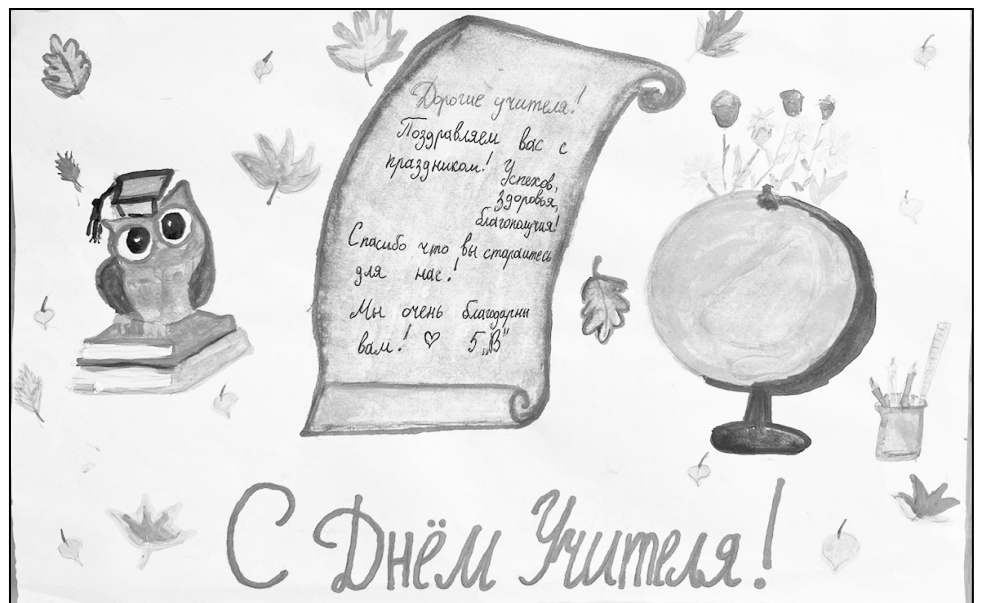 Дорогие учителя!
Поздравляем вас с
праздником! Успехов,
здоровья,
благополучия!
Спасибо что вы стараитесь
для нас!
Мы очень благодарны
вам! ♡ 5„В"
С Днём Учителя!